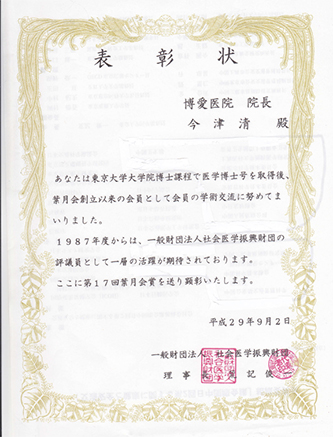 表彰状
博愛医院 院長
今津清 殿
あなたは東京大学大学院博士課程で医学博士号を取得後、
葉月会創立以来の会員として会員の学術交流に努めてま
いりました。
1987年度からは、一般財団法人社会医学振興財団の
評議員として一層の活躍が期待されております。
ここに第17回葉月会賞を送り顕彰いたします。
平成29年9月2日
一般財団法人 社会医学振興財団
理事長 記俊